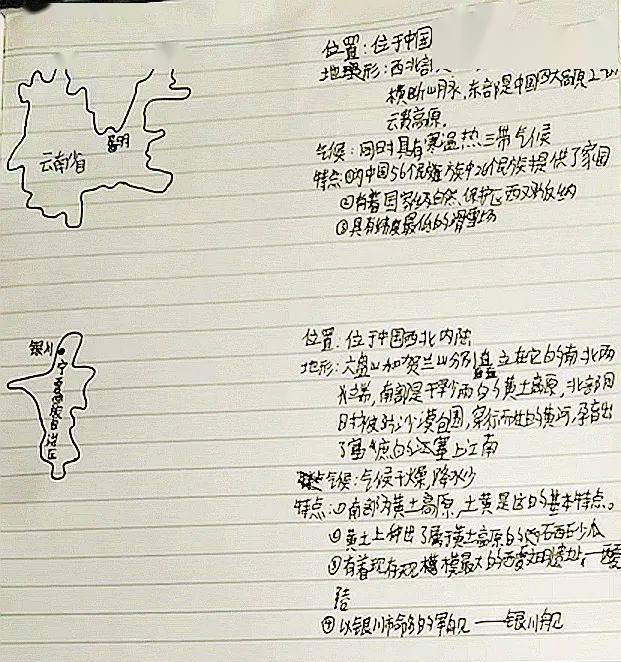 位置：位于中国
地形：西北部
横断山脉，东部是中国四大高原之一的
云贵高原。
气候：同时具有寒温热三带气候
特点：①为中国56个民族中26个民族提供了家园
②有着国家级自然保护区西双版纳
③具有纬度最低的滑雪场
云南省
昆明
位置：位于中国西北内陆
地形：六盘山和贺兰山分别矗立在它的南北两
端，南部是干旱少雨的黄土高原，北部同
时被沙漠包围，穿行而过的黄河，孕育出
了富庶的塞上江南
气候：气候干燥，降水少
特点：①南部为黄土高原，土黄是这里的基本特点。
②黄土上种出了属于黄土高原的西瓜砂瓜
③有着现存规模最大的西夏遗址，一西夏
陵
④以银川市命名的军舰——银川舰
银川
宁夏回族自治区